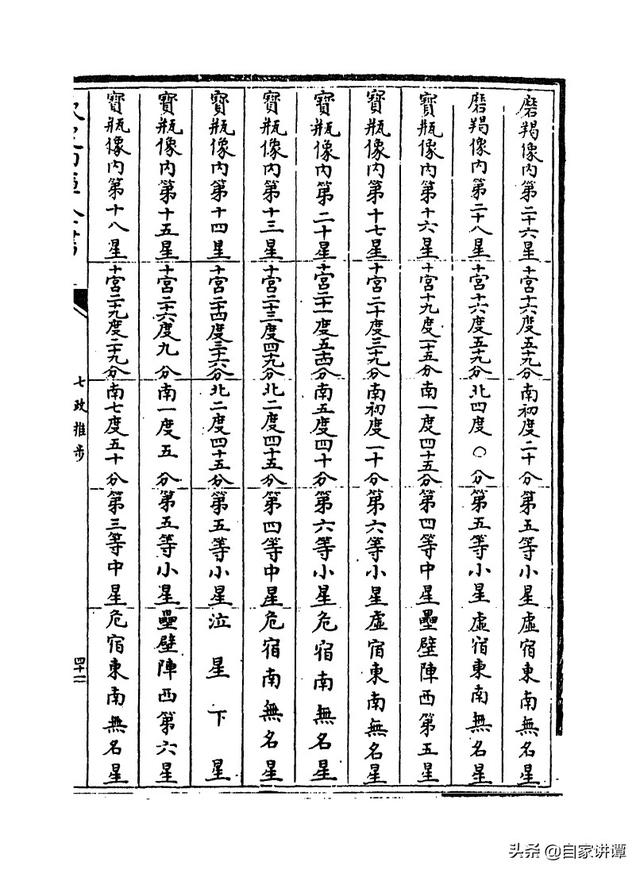 磨羯像內第二十六星 十宮十六度五十九分 南初度二十分 第五等小星 虛宿東南無名星
磨羯像內第二十八星 十宮十六度五十九分 北四度〇分 第五等小星 虛宿東南無名星
寶瓶像內第十六星 十宮十九度一十五分 南一度四十五分 第四等中星 壘壁陣西第五星
寶瓶像內第十七星 十宮二十度三十九分 南初度一十分 第六等小星 虛宿東南無名星
寶瓶像內第二十星 十宮二十一度五十四分 南五度四十分 第六等小星 危宿南無名星
寶瓶像內第十三星 十宮二十三度四十九分 北二度四十五分 第四等中星 危宿南無名星
寶瓶像內第十四星 十宮二十四度三十六分 北二度四十五分 第五等小星 泣星下星
寶瓶像內第十五星 十宮二十六度九分 南一度五分 第五等小星 壘壁陣西第六星
寶瓶像內第十八星 十宮二十九度二十九分 南七度五十分 第三等中星 危宿東南無名星
七政推步
四十二
头条 @自家讲谭